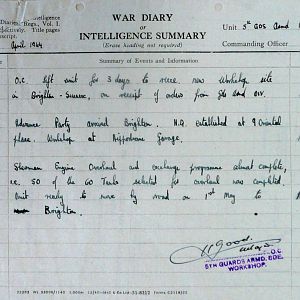 Intelligence
WAR DIARY
Diaries
Regs., Vol. I.
or
ectively. Title pages
INTELLIGENCE SUMMARY
Unit 5th GDS Armd
script.
(Erase heading not required)
Commanding Officer
April 1944
Summary of Events and Information
O.C. left unit for 3 days to new Workshop site
in Brighton - on receipt of orders from Gds Armd Div.
Advance Party arrived Brighton. H.Q. established at 9 Oriental
place. Workshop at Hippodrome Garage.
Sherman Engine Overhaul and exchange programme almost complete,
i.e. 50 of the 60 Tanks selected for overhaul was completed.
Unit ready to move by road on 1st May to
Brighton.
O.C.
5TH GUARDS ARMD. BDE.
WORKSHOP.